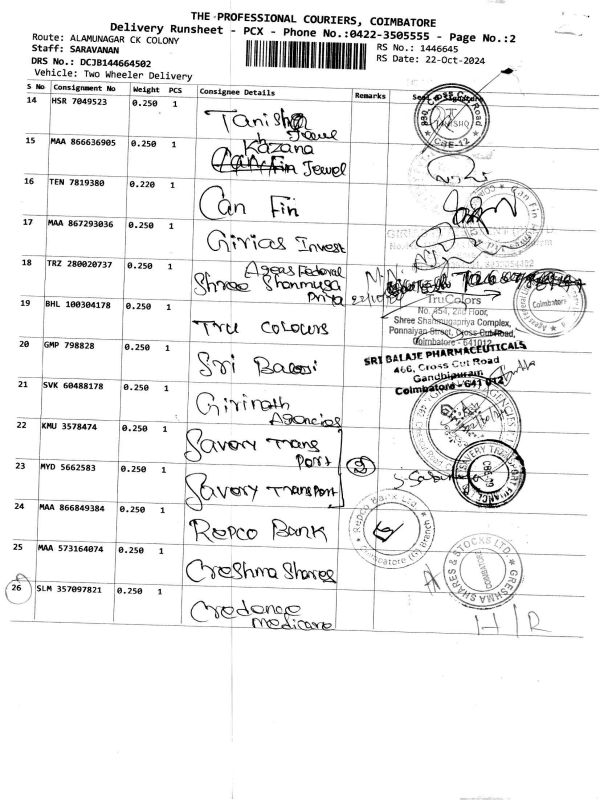 THE PROFESSIONAL COURIERS, COIMBATORE
Delivery Runsheet - PCX - Phone No.:0422-3505555 - Page No.:2
Route: ALAMUNAGAR CK COLONY
Staff: SARAVANAN
RS No.: 1446645
DRS No.: DCJB144664502
RS Date: 22-Oct-2024
Vehicle: Two Wheeler Delivery
S No Consignment No Weight PCS Consignee Details Remarks
14 HSR 7049523 0.250 1 Tanishq
Jewel
15 MAA 866636905 0.250 1 Kazana
Jewel
16 TEN 7819380 0.220 1 Can Fin
17 MAA 867293036 0.250 1 Girias Invest
18 TRZ 280020737 0.250 1 Ageas Federal
Shree Shanmuga
Priya
22/10
19 BHL 100304178 0.250 1 Tru Colours
TruColors
No. 454, 2nd Floor,
Shree Shanmugapriya Complex,
Ponnaiyan Street, Cross Cut Road,
Coimbatore - 641012
20 GMP 798828 0.250 1 Sri
SRI BALAJE PHARMACEUTICALS
466, Cross Cut Road
Gandhipuram
Coimbatore - 641 012
21 SVK 60488178 0.250 1 Girinath
Agencies
22 KMU 3578474 0.250 1 Savory Trans
Port
23 MYD 5662583 0.250 1 Savory Transport
2
24 MAA 866849384 0.250 1 Repco Bank
Repco Bank Ltd
Coimbatore (G) Branch
25 MAA 573164074 0.250 1 Greshma Shares
GRESHMA SHARES & STOCKS LTD.
COIMBATORE
26 SLM 357097821 0.250 1 Credence
Medicare
H/R